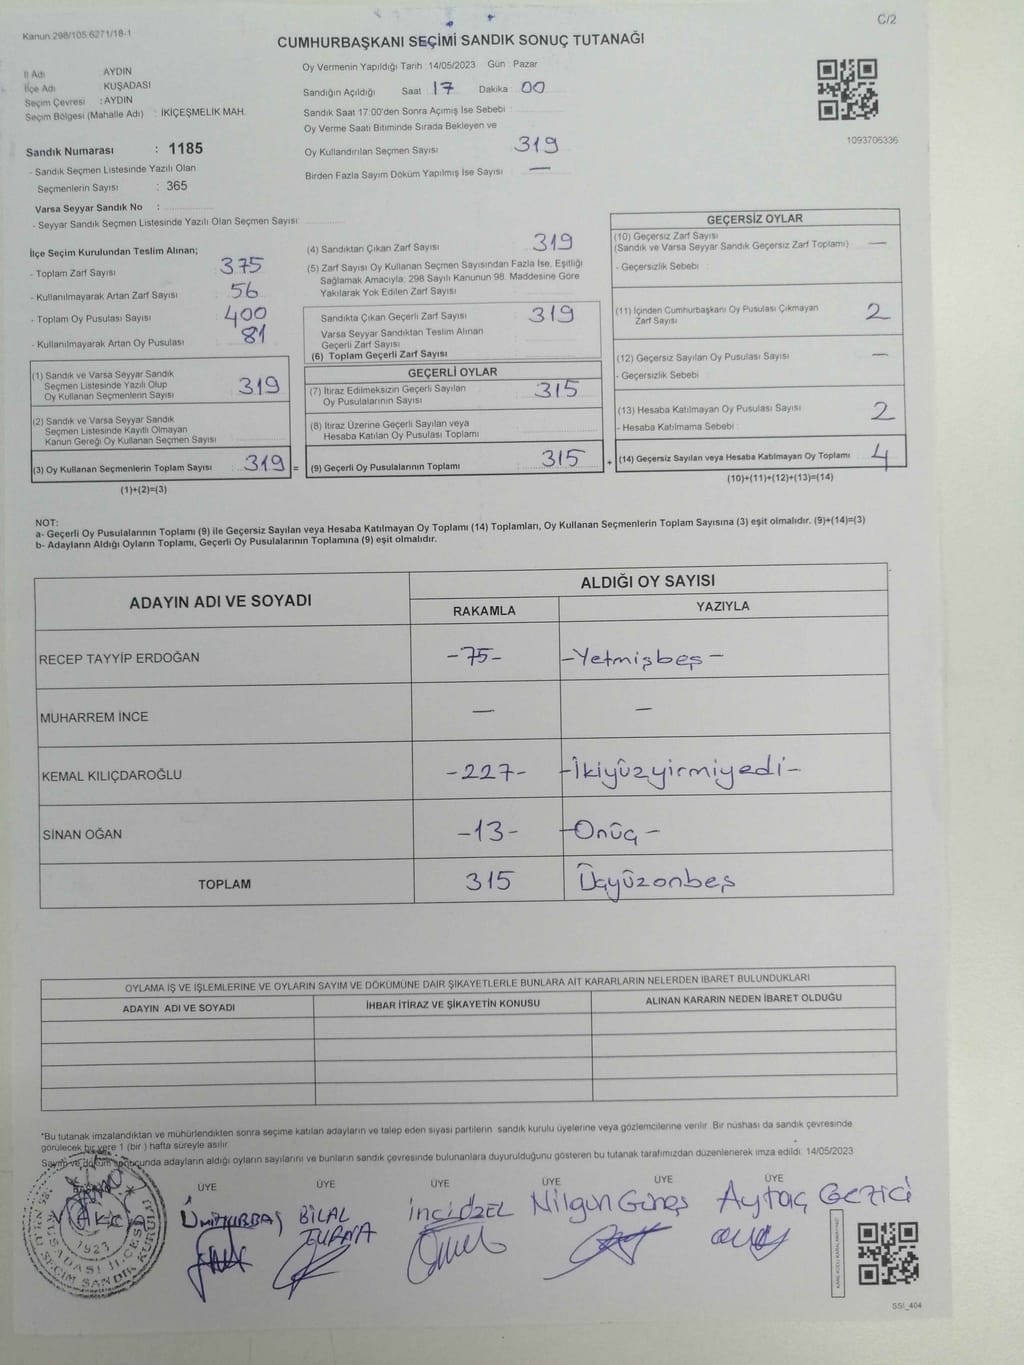 Kanun 298/105 6271/18-1
C/2
CUMHURBAŞKANI SEÇİMİ SANDIK SONUÇ TUTANAĞI
İl Adı AYDIN
İlçe Adı KUŞADASI
Seçim Çevresi : AYDIN
Seçim Bölgesi (Mahalle Adı) : İKİÇEŞMELİK MAH.
Sandık Numarası : 1185
- Sandık Seçmen Listesinde Yazılı Olan
Seçmenlerin Sayısı : 365
Varsa Seyyar Sandık No :
- Seyyar Sandık Seçmen Listesinde Yazılı Olan Seçmen Sayısı:
Oy Vermenin Yapıldığı Tarih 14/05/2023 Gün Pazar
Sandığın Açıldığı Saat 17 Dakika 00
Sandık Saat 17:00'den Sonra Açımış İse Sebebi
Oy Verme Saati Bitiminde Sırada Bekleyen ve
Oy Kullandırılan Seçmen Sayısı 319
Birden Fazla Sayım Döküm Yapılmış İse Sayısı —
1093706336
İlçe Seçim Kurulundan Teslim Alınan;
- Toplam Zarf Sayısı 375
- Kullanılmayarak Artan Zarf Sayısı 56
- Toplam Oy Pusulası Sayısı 400
- Kullanılmayarak Artan Oy Pusulası 81
(1) Sandık ve Varsa Seyyar Sandık
Seçmen Listesinde Yazılı Olup
Oy Kullanan Seçmenlerin Sayısı 319
(2) Sandık ve Varsa Seyyar Sandık
Seçmen Listesinde Kayıtlı Olmayan
Kanun Gereği Oy Kullanan Seçmen Sayısı
(3) Oy Kullanan Seçmenlerin Toplam Sayısı : 319 =
(1)+(2)=(3)
(4) Sandıktan Çıkan Zarf Sayısı 319
(5) Zarf Sayısı Oy Kullanan Seçmen Sayısından Fazla İse, Eşitliği
Sağlamak Amacıyla; 298 Sayılı Kanunun 98. Maddesine Göre
Yakılarak Yok Edilen Zarf Sayısı
Sandıkta Çıkan Geçerli Zarf Sayısı 319
Varsa Seyyar Sandıktan Teslim Alınan
Geçerli Zarf Sayısı
(6) Toplam Geçerli Zarf Sayısı
GEÇERLİ OYLAR
(7) İtiraz Edilmeksizin Geçerli Sayılan
Oy Pusulalarının Sayısı 315
(8) İtiraz Üzerine Geçerli Sayılan veya
Hesaba Katılan Oy Pusulası Toplamı
(9) Geçerli Oy Pusulalarının Toplamı 315 +
GEÇERSİZ OYLAR
(10) Geçersiz Zarf Sayısı
(Sandık ve Varsa Seyyar Sandık Geçersiz Zarf Toplamı) —
- Geçersizlik Sebebi
(11) İçinden Cumhurbaşkanı Oy Pusulası Çıkmayan
Zarf Sayısı 2
(12) Geçersiz Sayılan Oy Pusulası Sayısı —
- Geçersizlik Sebebi
(13) Hesaba Katılmayan Oy Pusulası Sayısı 2
- Hesaba Katılmama Sebebi
(14) Geçersiz Sayılan veya Hesaba Katılmayan Oy Toplamı 4
(10)+(11)+(12)+(13)=(14)
NOT:
a- Geçerli Oy Pusulalarının Toplamı (9) ile Geçersiz Sayılan veya Hesaba Katılmayan Oy Toplamı (14) Toplamları, Oy Kullanan Seçmenlerin Toplam Sayısına (3) eşit olmalıdır. (9)+(14)=(3)
b- Adayların Aldığı Oyların Toplamı, Geçerli Oy Pusulalarının Toplamına (9) eşit olmalıdır.
ADAYIN ADI VE SOYADI ALDIĞI OY SAYISI
RAKAMLA YAZIYLA
RECEP TAYYİP ERDOĞAN -75- -Yetmişbeş-
MUHARREM İNCE — —
KEMAL KILIÇDAROĞLU -227- -İkiyüzyirmiyedi-
SİNAN OĞAN -13- -Onüç-
TOPLAM 315 Üçyüzonbeş
OYLAMA İŞ VE İŞLEMLERİNE VE OYLARIN SAYIM VE DÖKÜMÜNE DAİR ŞİKAYETLERLE BUNLARA AİT KARARLARIN NELERDEN İBARET BULUNDUKLARI
ADAYIN ADI VE SOYADI İHBAR İTİRAZ VE ŞİKAYETİN KONUSU ALINAN KARARIN NEDEN İBARET OLDUĞU
*Bu tutanak imzalandıktan ve mühürlendikten sonra seçime katılan adayların ve talep eden siyasi partilerin sandık kurulu üyelerine veya gözlemcilerine verilir. Bir nüshası da sandık çevresinde
görülecek bir yere 1 (bir) hafta süreyle asılır.
Sayım ve döküm sonucunda adayların aldığı oyların sayılarını ve bunların sandık çevresinde bulunanlara duyurulduğunu gösteren bu tutanak tarafımızdan düzenlenerek imza edildi. 14/05/2023
ÜYE ÜYE ÜYE ÜYE ÜYE
BİLAL inci ÖZEL Nilgün Güneş Aytaç GEZİCİ
SSİ_404